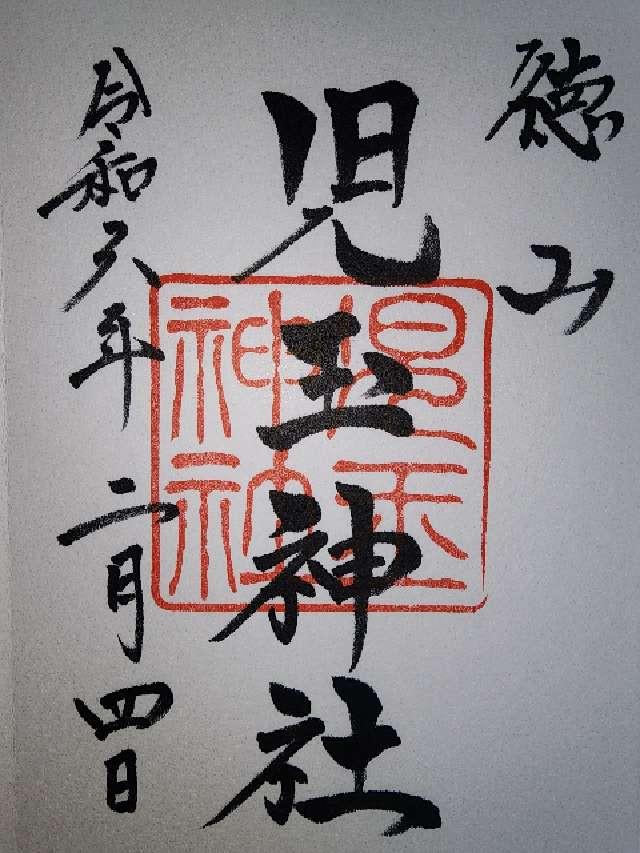 徳山
児玉神社
児玉神社
令和六年二月四日